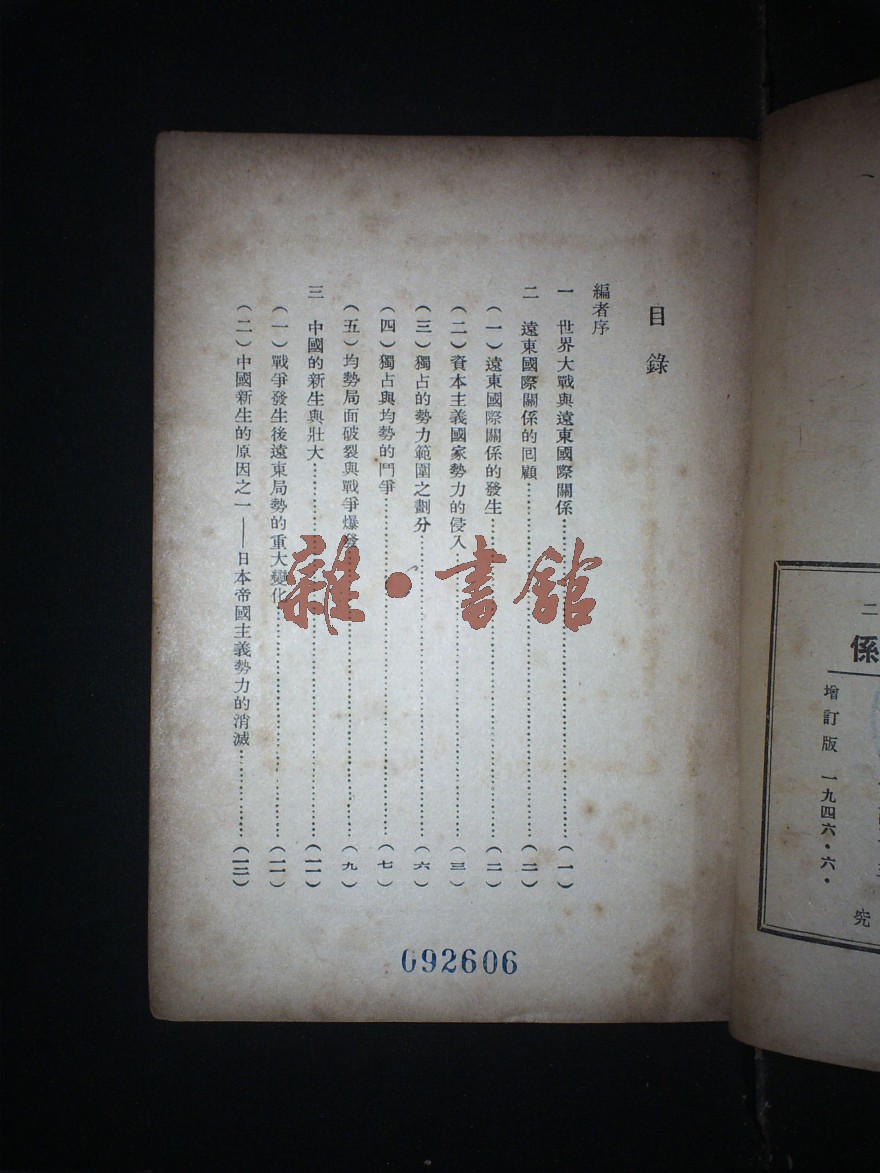 目錄
編者序
一 世界大戰與遠東國際關係……(一)
二 遠東國際關係的回顧……(二)
(一)遠東國際關係的發生……(二)
(二)資本主義國家勢力的侵入……(三)
(三)獨占的勢力範圍之劃分……(六)
(四)獨占與均勢的鬥爭……(七)
(五)均勢局面破裂與戰爭爆發……(九)
三 中國的新生與壯大……(一一)
(一)戰爭發生後遠東局勢的重大變化……(一一)
(二)中國新生的原因之一——日本帝國主義勢力的消滅……(一三)
092606
雜·書館
二
係
增訂版 一九四六·六·
究